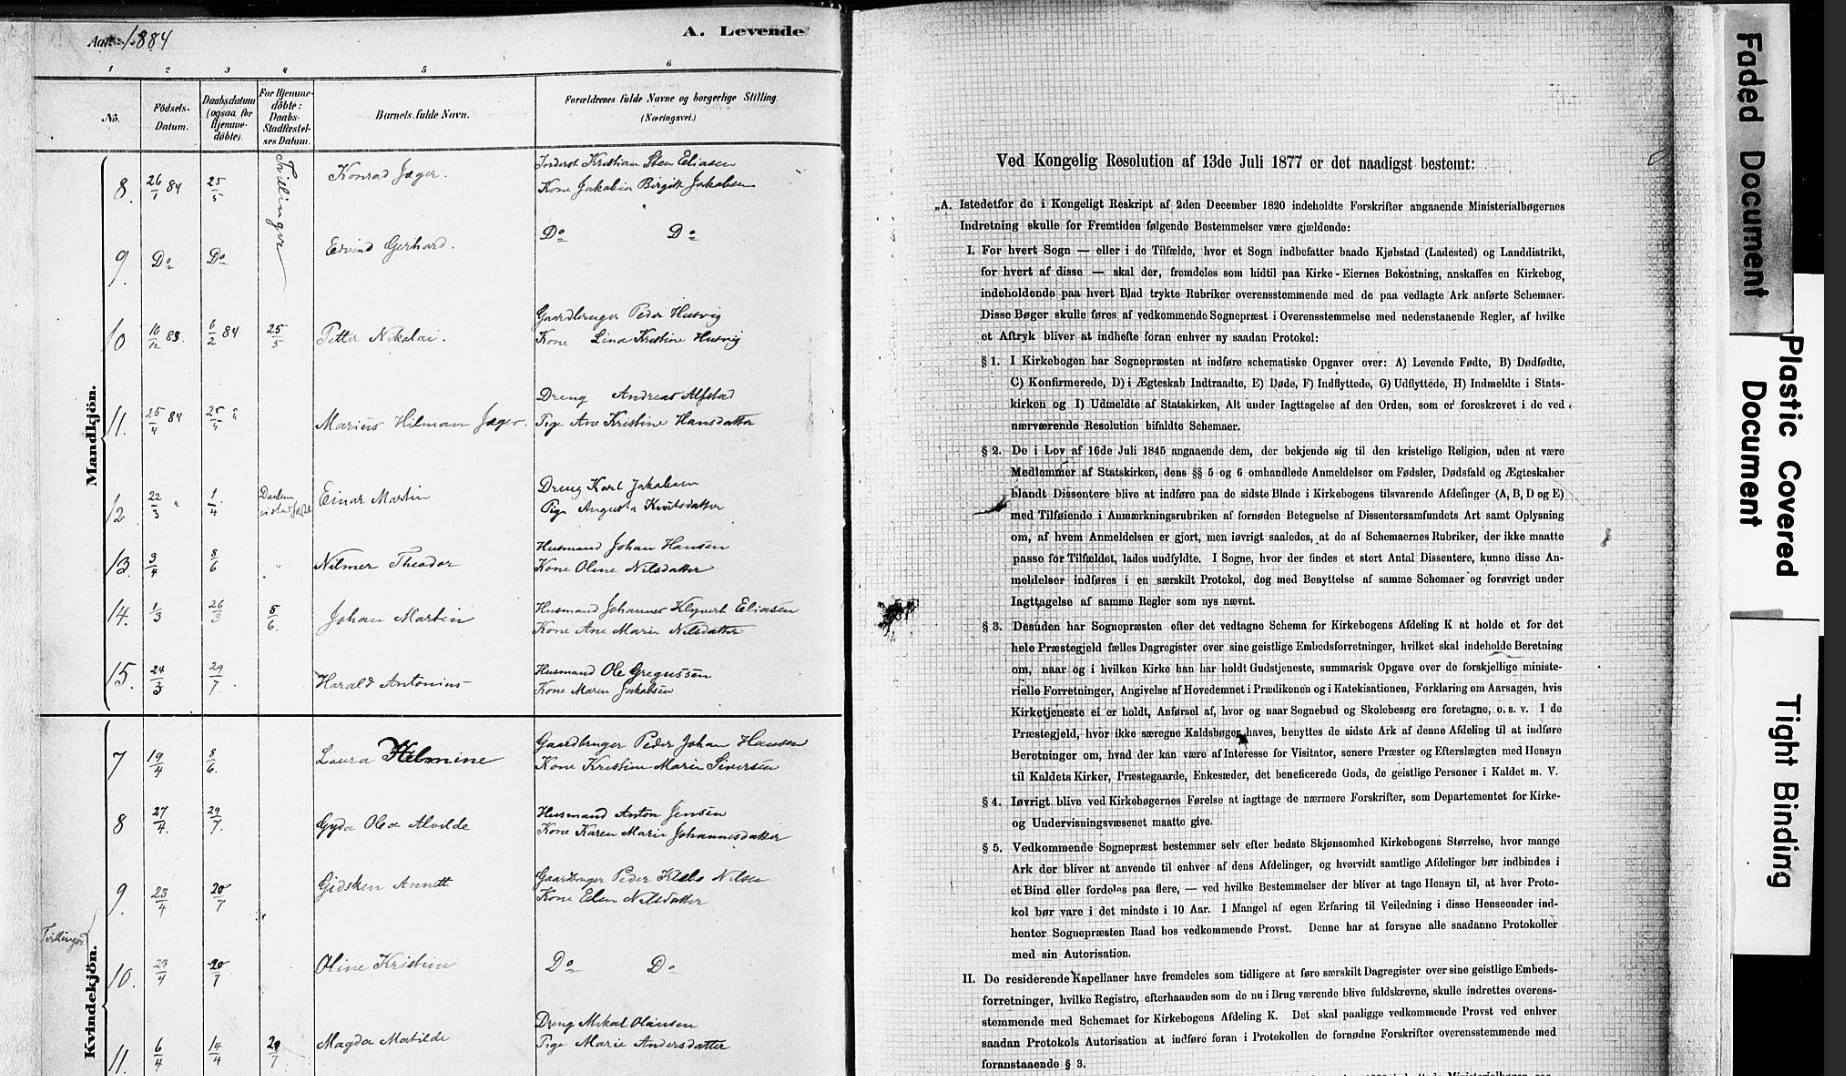 Aar 1884
A. Levende
1 2 3 4 5 6
No.
Födsels-
Datum.
Daabsdatum
(ogsaa for
Hjemme-
döbte).
For Hjemme-
döbte:
Daabs-
Stadfæstel-
ses Datum.
Barnets fulde Navn.
Forældrenes fulde Navne og borgerlige Stilling
(Næringsvei.)
Mandkjön.
Tvillinger
8. 26/1 84 25/5 Konrad Jæger.
Inderst Kristian Sten Eliasen
Kone Jakobia Birgitt Jakobsen
9. Do Do Eivind Gerhard. Do Do
10 10/12 83. 6/2 84 25/5 Petter Nikolai.
Gaardbruger Peder Husvig
Kone Lina Kristine Husvig
11. 25/4 84 25/5 Marius Hilman Jæger.
Dreng Andreas Alfstad
Pige Ane Kristine Hansdatter
12 22/3 " 1/4 Einar Martin
Dreng Karl Jakobsen
Pige Augusta Knutsdatter
13. 3/4 8/6 Nilmer Theodor
Husmand Johan Hansen
Kone Oline Nilsdatter
14. 1/3 26/3 8/6. Johan Martin
Husmand Johannes Klynert Eliasen
Kone Ane Marie Nilsdatter
15. 24/3 29/7. Harald Antonius
Husmand Ole Gregussen
Kone Maren Jakobsen
Kvindekjön.
7 19/4 8/6. Laura Helmine
Gaardbruger Peder Johan Hansen
Kone Kristine Marie Siversen
8 27/4. 29/7. Gyda Olea Alvilde
Husmand Anton Jensen
Kone Karen Marie Johannesdatter
Tvillinger
9. 23/4 20/7 Gidsken Annett
Gaardbruger Peder Klebo Nilsen
Kone Elen Nilsdatter
10. 23/4 20/7 Oline Kristine Do Do
11. 6/4 14/4 20/7 Magda Matilde
Dreng Mikal Olausen
Pige Marie Andersdatter
Ved Kongelig Resolution af 13de Juli 1877 er det naadigst bestemt:
„A. Istedetfor de i Kongeligt Reskript af 2den December 1820 indeholdte Forskrifter angaaende Ministerialbøgernes
Indretning skulle for Fremtiden følgende Bestemmelser være gjældende:
I. For hvert Sogn — eller i de Tilfælde, hvor et Sogn indbefatter baade Kjøbstad (Ladested) og Landdistrikt,
for hvert af disse — skal der, fremdeles som hidtil paa Kirke-Eiernes Bekostning, anskaffes en Kirkebog,
indeholdende paa hvert Blad trykte Rubriker overensstemmende med de paa vedlagte Ark anførte Schemaer.
Disse Bøger skulle føres af vedkommende Sognepræst i Overensstemmelse med nedenstaaende Regler, af hvilke
et Aftryk bliver at indhefte foran enhver ny saadan Protokol:
§ 1. I Kirkebogen har Sognepræsten at indføre schematiske Opgaver over: A) Levende Fødte, B) Dødfødte,
C) Konfirmerede, D) i Ægteskab Indtraadte, E) Døde, F) Indflyttede, G) Udflyttede, H) Indmeldte i Stats-
kirken og I) Udmeldte af Statskirken, Alt under Iagttagelse af den Orden, som er foreskrevet i de ved
nærværende Resolution bifaldte Schemaer.
§ 2. De i Lov af 16de Juli 1845 angaaende dem, der bekjende sig til den kristelige Religion, uden at være
Medlemmer af Statskirken, dens §§ 5 og 6 omhandlede Anmeldelser om Fødsler, Dødsfald og Ægteskaber
blandt Dissentere blive at indføre paa de sidste Blade i Kirkebogens tilsvarende Afdelinger (A, B, D og E)
med Tilføiende i Anmærkningsrubriken af fornøden Betegnelse af Dissentersamfundets Art samt Oplysning
om, af hvem Anmeldelsen er gjort, men iøvrigt saaledes, at de af Schemaernes Rubriker, der ikke maatte
passe for Tilfældet, lades uudfyldte. I Sogne, hvor der findes et stort Antal Dissentere, kunne disse An-
meldelser indføres i en særskilt Protokol, dog med Benyttelse af samme Schemaer og forøvrigt under
Iagttagelse af samme Regler som nys nævnt.
§ 3. Desuden har Sognepræsten efter det vedtagne Schema for Kirkebogens Afdeling K at holde et for det
hele Præstegjeld fælles Dagregister over sine geistlige Embedsforretninger, hvilket skal indeholde Beretning
om, naar og i hvilken Kirke han har holdt Gudstjeneste, summarisk Opgave over de forskjellige ministe-
rielle Forretninger, Angivelse af Hovedemnet i Prædikenen og i Katekisationen, Forklaring om Aarsagen, hvis
Kirketjeneste ei er holdt, Anførsel af, hvor og naar Sognebud og Skolebesøg ere foretagne, o. s. v. I de
Præstegjeld, hvor ikke særegne Kaldsbøger haves, benyttes de sidste Ark af denne Afdeling til at indføre
Beretninger om, hvad der kan være af Interesse for Visitator, senere Præster og Efterslægten med Hensyn
til Kaldets Kirker, Præstegaarde, Enkesæder, det beneficerede Gods, de geistlige Personer i Kaldet m. V.
§ 4. Iøvrigt blive ved Kirkebøgernes Førelse at iagttage de nærmere Forskrifter, som Departementet for Kirke-
og Undervisningsvæsenet maatte give.
§ 5. Vedkommende Sognepræst bestemmer selv efter bedste Skjønsomhed Kirkebogens Størrelse, hvor mange
Ark der bliver at anvende til enhver af dens Afdelinger, og hvorvidt samtlige Afdelinger bør indbindes i
et Bind eller fordeles paa flere, — ved hvilke Bestemmelser der bliver at tage Hensyn til, at hver Proto-
kol bør vare i det mindste i 10 Aar. I Mangel af egen Erfaring til Veiledning i disse Henseender ind-
henter Sognepræsten Raad hos vedkommende Provst. Denne har at forsyne alle saadanne Protokoller
med sin Autorisation.
II. De residerende Kapellaner have fremdeles som tidligere at føre særskilt Dagregister over sine geistlige Embeds-
forretninger, hvilke Registre, efterhaanden som de nu i Brug værende blive fuldskrevne, skulle indrettes overens-
stemmende med Schemaet for Kirkebogens Afdeling K. Det skal paaligge vedkommende Provst ved enhver
saadan Protokols Autorisation at indføre foran i Protokollen de fornødne Forskrifter overensstemmende med
foranstaaende § 3.
Faded Document
Plastic Covered
Document
Tight Binding